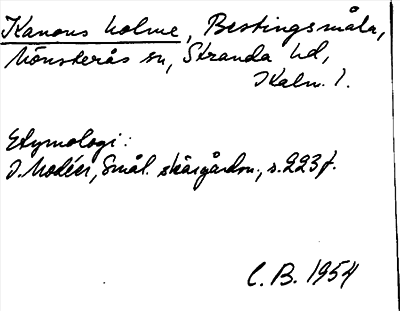 Kanons holme, Bestingsmåla,
Mönsterås sn, Stranda hd,
Kalm. l.
Etymologi:
J. Modéer, Smål. skärgårdsn., s. 223 f.
C. B. 1954